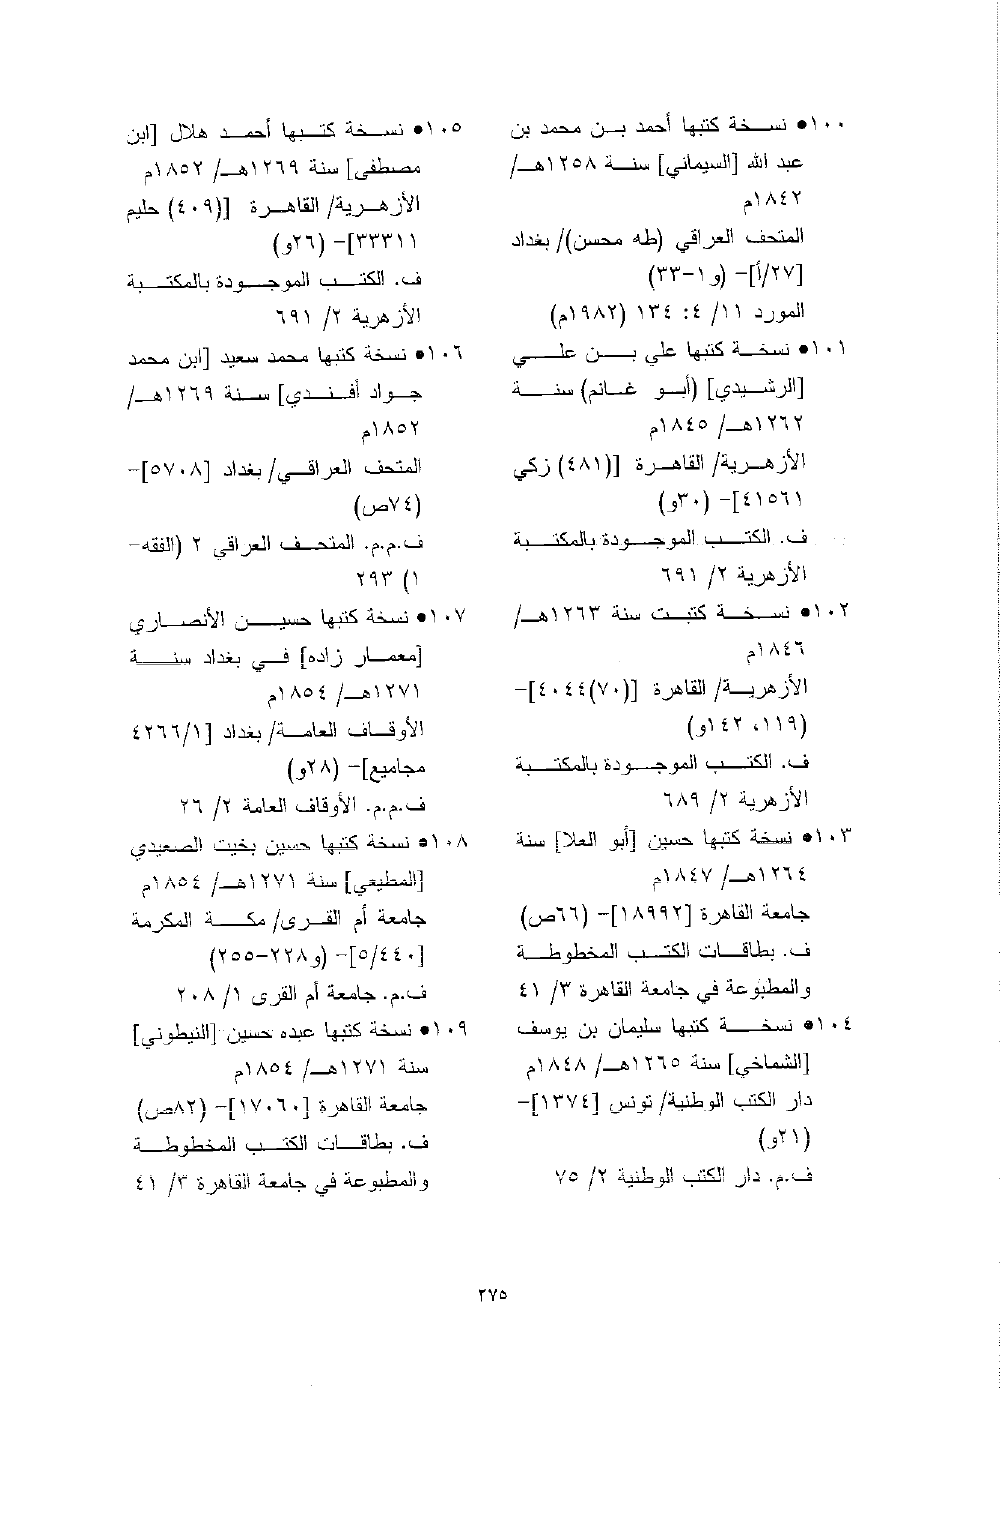 ١٠٠● نسخة كتبها أحمد بن محمد بن
عبد الله [السيماني] سنة ١٢٥٨هـ/
١٨٤٢م
المتحف العراقي (طه محسن)/ بغداد
[٢٧/أ]- (و١-٣٣)
المورد ١١/ ٤: ١٣٤ (١٩٨٢م)
١٠١● نسخة كتبها علي بن علي
[الرشيدي] (أبو غانم) سنة
١٢٦٢هـ/ ١٨٤٥م
الأزهرية/ القاهرة [(٤٨١) زكي
٤١٥٦١]- (٣٠و)
ف. الكتب الموجودة بالمكتبة
الأزهرية ٢/ ٦٩١
١٠٢● نسخة كتبت سنة ١٢٦٣هـ/
١٨٤٦م
الأزهرية/ القاهرة [(٧٠)٤٠٤٤]-
(١١٩، ١٤٢و)
ف. الكتب الموجودة بالمكتبة
الأزهرية ٢/ ٦٨٩
١٠٣● نسخة كتبها حسين [أبو العلا] سنة
١٢٦٤هـ/ ١٨٤٧م
جامعة القاهرة [١٨٩٩٢]- (٦٦ص)
ف. بطاقات الكتب المخطوطة
والمطبوعة في جامعة القاهرة ٣/ ٤١
١٠٤● نسخة كتبها سليمان بن يوسف
[الشماخي] سنة ١٢٦٥هـ/ ١٨٤٨م
دار الكتب الوطنية/ تونس [١٣٧٤]-
(٢١و)
ف.م. دار الكتب الوطنية ٢/ ٧٥
١٠٥● نسخة كتبها أحمد هلال [ابن
مصطفى] سنة ١٢٦٩هـ/ ١٨٥٢م
الأزهرية/ القاهرة [(٤٠٩) حليم
٣٣٣١١]- (٢٦و)
ف. الكتب الموجودة بالمكتبة
الأزهرية ٢/ ٦٩١
١٠٦● نسخة كتبها محمد سعيد [ابن محمد
جواد أفندي] سنة ١٢٦٩هـ/
١٨٥٢م
المتحف العراقي/ بغداد [٥٧٠٨]-
(٧٤ص)
ف.م.م. المتحف العراقي ٢ (الفقه-
١) ٢٩٣
١٠٧● نسخة كتبها حسين الأنصاري
[معمار زاده] في بغداد سنة
١٢٧١هـ/ ١٨٥٤م
الأوقاف العامة/ بغداد [٤٢٦٦/١
مجاميع]- (٢٨و)
ف.م.م. الأوقاف العامة ٢/ ٢٦
١٠٨● نسخة كتبها حسين بخيت الصعيدي
[المطيعي] سنة ١٢٧١هـ/ ١٨٥٤م
جامعة أم القرى/ مكة المكرمة
[٥/٤٤٠]- (و٢٢٨-٢٥٥)
ف.م. جامعة أم القرى ١/ ٢٠٨
١٠٩● نسخة كتبها عبده حسين [النيطوني]
سنة ١٢٧١هـ/ ١٨٥٤م
جامعة القاهرة [١٧٠٦٠]- (٨٢ص)
ف. بطاقات الكتب المخطوطة
والمطبوعة في جامعة القاهرة ٣/ ٤١
٢٧٥